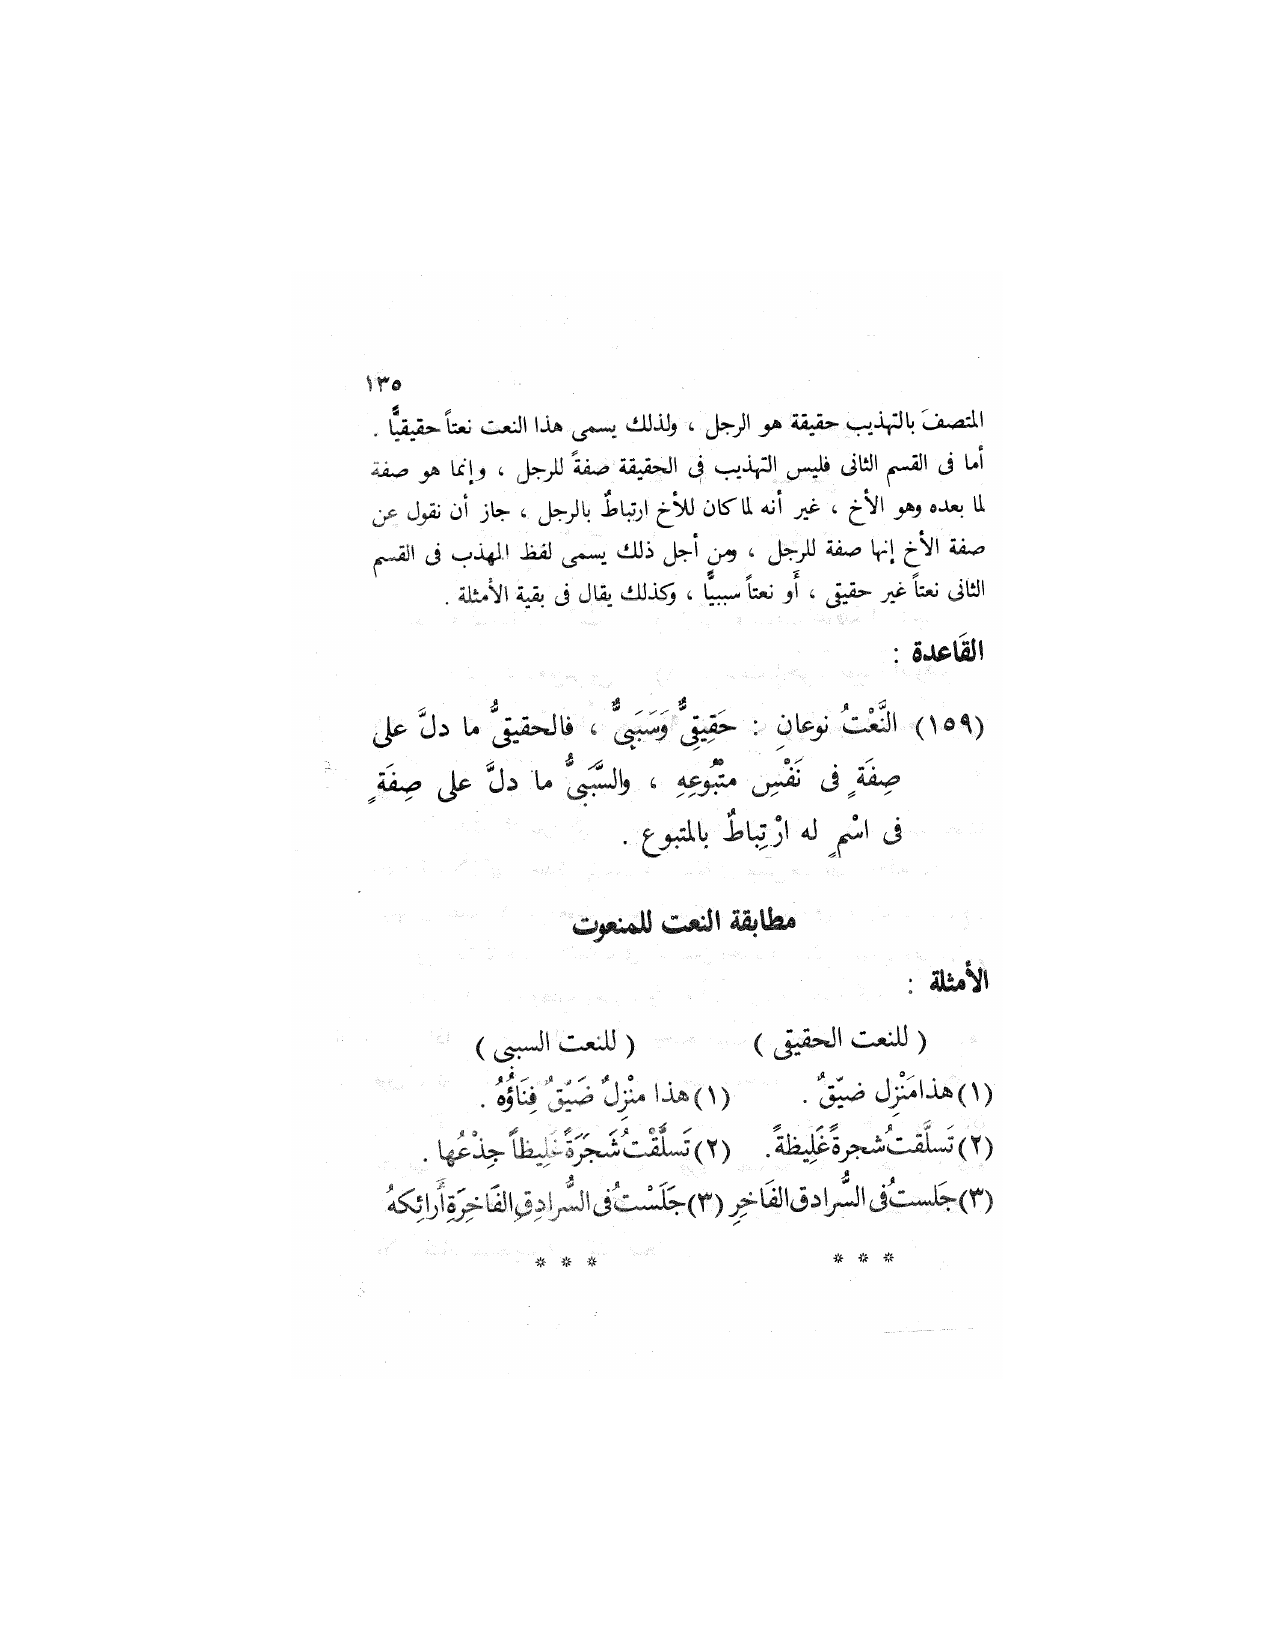 ١٣٥
المتصفَ بالتهذيب حقيقة هو الرجل ، ولذلك يسمى هذا النعت نعتاً حقيقيًّا .
أما فى القسم الثانى فليس التهذيب فى الحقيقة صفةً للرجل ، وإنما هو صفة
لما بعده وهو الأخ ، غير أنه لما كان للأخ ارتباطٌ بالرجل ، جاز أن نقول عن
صفة الأخ إنها صفة للرجل ، ومن أجل ذلك يسمى لفظ المهذب فى القسم
الثانى نعتاً غير حقيقى ، أو نعتاً سببيًّا ، وكذلك يقال فى بقية الأمثلة .
القَاعدة :
(١٥٩) النَّعْتُ نوعانِ : حَقِيقِىٌّ وَسَبَبِىٌّ ، فالحقيقىُّ ما دلَّ على
صِفَةٍ فى نَفْسِ متْبُوعِهِ ، والسَّبَبىُّ ما دلَّ على صِفَةٍ
فى اسْمٍ له ارْتِباطٌ بالمتبوع .
مطابقة النعت للمنعوت
الأمثلة :
( للنعت الحقيقى ) ( للنعت السببى )
(١) هذا مَنْزِل ضيّقٌ . (١) هذا منْزِلٌ ضَيِّقٌ فِنَاؤُهُ .
(٢) تَسلَّقتُ شجرةً غَلِيظةً . (٢) تَسلَّقْتُ شَجَرَةً غَلِيظاً جِذْعُها .
(٣) جَلستُ فى السُّرادق الفَاخرِ (٣) جَلَسْتُ فى السُّرادِقِ الفَاخِرَةِ أَرائِكهُ
* * * * * *